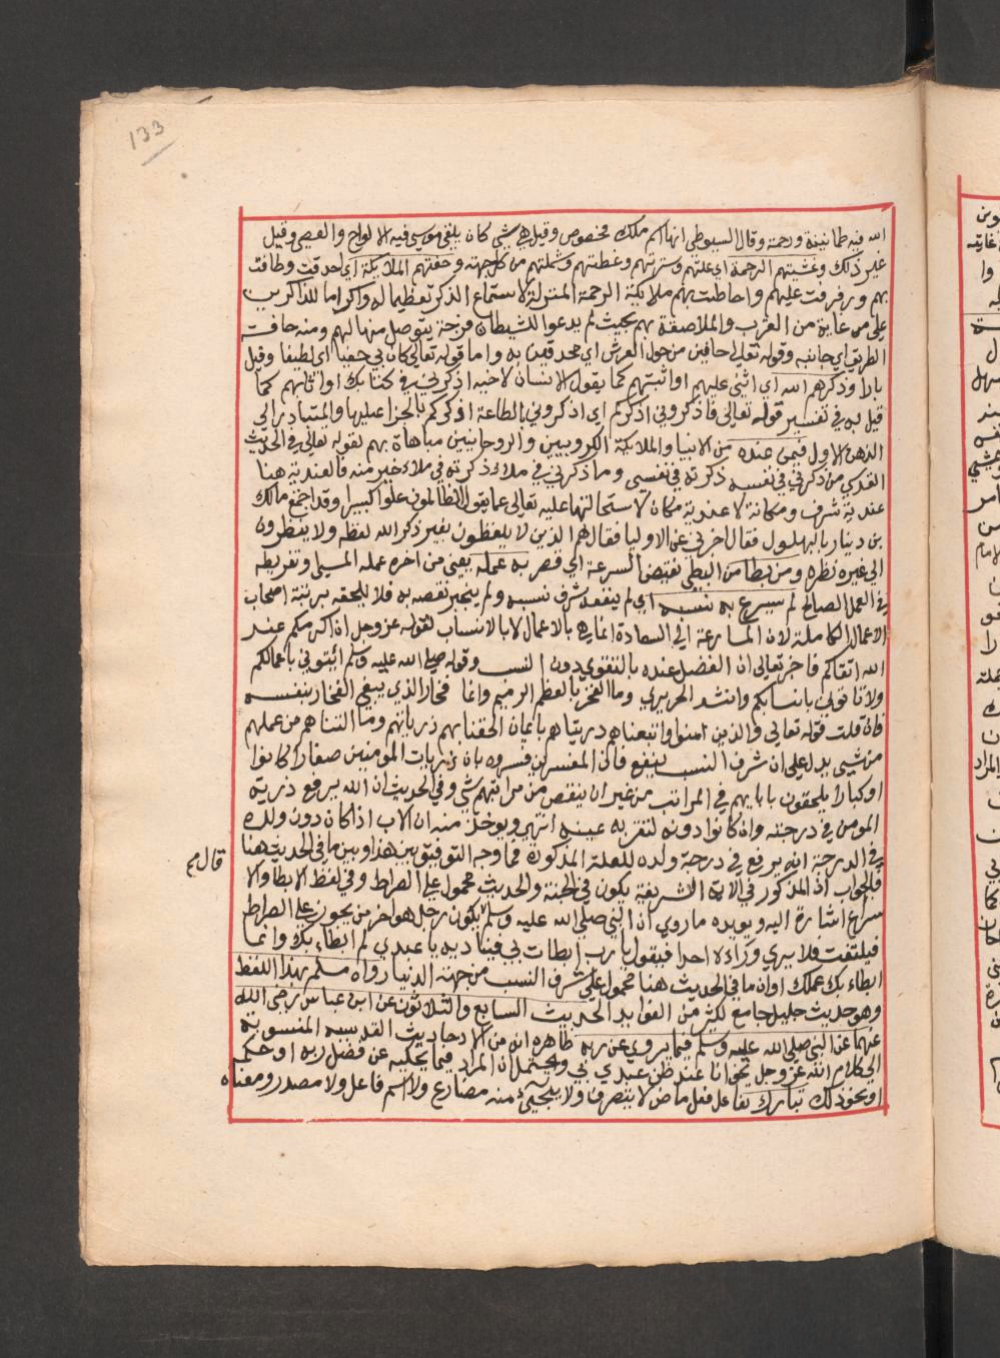 133
الله فيه طمانينة ورحمة وقال السيوطي انها اسم ملك مخصوص وقيل هي شي كان يلقي موسى فيه الالواح والعصى وقيل
غير ذلك وغشيتهم الرحمة اي علتهم وسترتهم وغطتهم وشملتهم من كل جهته وحفتهم الملايكة اي احدقت وطافت
بهم ورفرفت عليهم واحاطت بهم ملايكة الرحمة المتنزلة لاستماع الذكر تعظيما له واكراما للذاكرين
على من غاية من القرب والملاصقة بهم بحيث لم يدعوا للشيطان فرجة يتوصل منها لهم ومنه حافت
الطريق اي جانبه وقوله تعالى حافين من حول العرش اي محدقين به واما قوله تعالى كان بي حفيا اي لطيفا وقيل
بارا وذكرهم الله اي اثنى عليهم او اثبتهم كما يقول الانسان لاخيه اذكرني في كتابك او اثابهم كما
قيل به في تفسير قوله تعالى فاذكروني اذكركم اي اذكروني بالطاعة اذكركم بالجزا عليها والمتبادر الى
الذهن الاول فيمن عنده من الانبيا والملايكة الكروبيين والروحانيين مباهاة بهم لقوله تعالى في الحديث
القدسي من ذكرني في نفسه ذكرته في نفسي وما ذكرني في ملاء ذكرته في ملاء خير منه فالعندية هنا
عندية شرف ومكانة لا عندية مكان لاستحالتها عليه تعالى عما يقول الظالمون علوا كبيرا وقد اجتمع مالك
بن دينار بالبهلول فقال اخبرني عن الاوليا فقال هم الذين لا يلفظون بغير ذكر الله لفظه ولا ينظرون
الى غيره نظره ومن بطا من البطئ نقيض السرعة اي قصر به عمله يعني من اخره عمله السيئ وتفريطه
في العمل الصالح لم يسرع به نسبه اي لم ينفعه شرف نسبه ولم ينجبر نقصه به فلا يلحقه برتبة اصحاب
الاعمال الكاملة لان المسارعة الى السعادة انما هي بالاعمال لا بالانساب لقوله عز وجل ان اكرمكم عند
الله اتقاكم فاخبر تعالى ان الفضل عنده بالتقوى دون النسب وقوله صلى الله عليه وسلم ائتوني باعمالكم
ولا تاتوني بانسابكم وانشد الحريري وما الفخر بالعظم الرميم وانما فخار الذي يبغي الفخار بنفسه
فان قلت قوله تعالى والذين امنوا واتبعناهم ذرياتهم بايمان الحقنا بهم ذرياتهم وما التناهم من عملهم
من شيى يدل على ان شرف النسب ينفع فان المفسرين فسروه بان ذريات المومنين صغارا كانوا
او كبارا يلحقون بابايهم في المراتب من غير ان ينقص من مراتبهم شي وفي الحديث ان الله يرفع ذرية
المومن في درجته وان كانوا دونه لتقر به عينه انتهى ويوخذ منه ان الاب اذا كان دون ولده
في الدرجة انه يرفع في درجة ولده للعلة المذكورة فما وجه التوفيق بين هذا وبين ما في الحديث هنا
قال م
فالجواب ان المذكور في الاية الشريفة يكون في الجنة والحديث محمول على الصراط وفي لفظ الابطا والا
سراع اشارة اليه ويويده ما روي ان النبي صلى الله عليه وسلم يكون رجل هو اخر من يجوز على الصراط
فيلتفت فلا يرى وراءه احدا فيقول يا رب ابطات بي فيناديه يا عبدي لم ابطاء بك وانما
ابطاء بك عملك او ان ما في الحديث هنا محمول على شرف النسب من جهة الدنيا رواه مسلم بهذا اللفظ
وهو حديث جليل جامع لكثير من الفوايد الحديث السابع والثلاثون عن ابن عباس رضى الله
عنهما عن النبي صلى الله عليه وسلم فيما يروي عن ربه ظاهره انه من الاحاديث القدسية المنسوبة
الى كلام الله عز وجل نحو انا عند ظن عبدي بي ويحتمل ان المراد فيما يحكيه عن فضل ربه او حكمه
او نحو ذلك تبارك تفاعل فعل ماض لا يتصرف ولا يجيئ منه مضارع ولا اسم فاعل ولا مصدر ومعناه